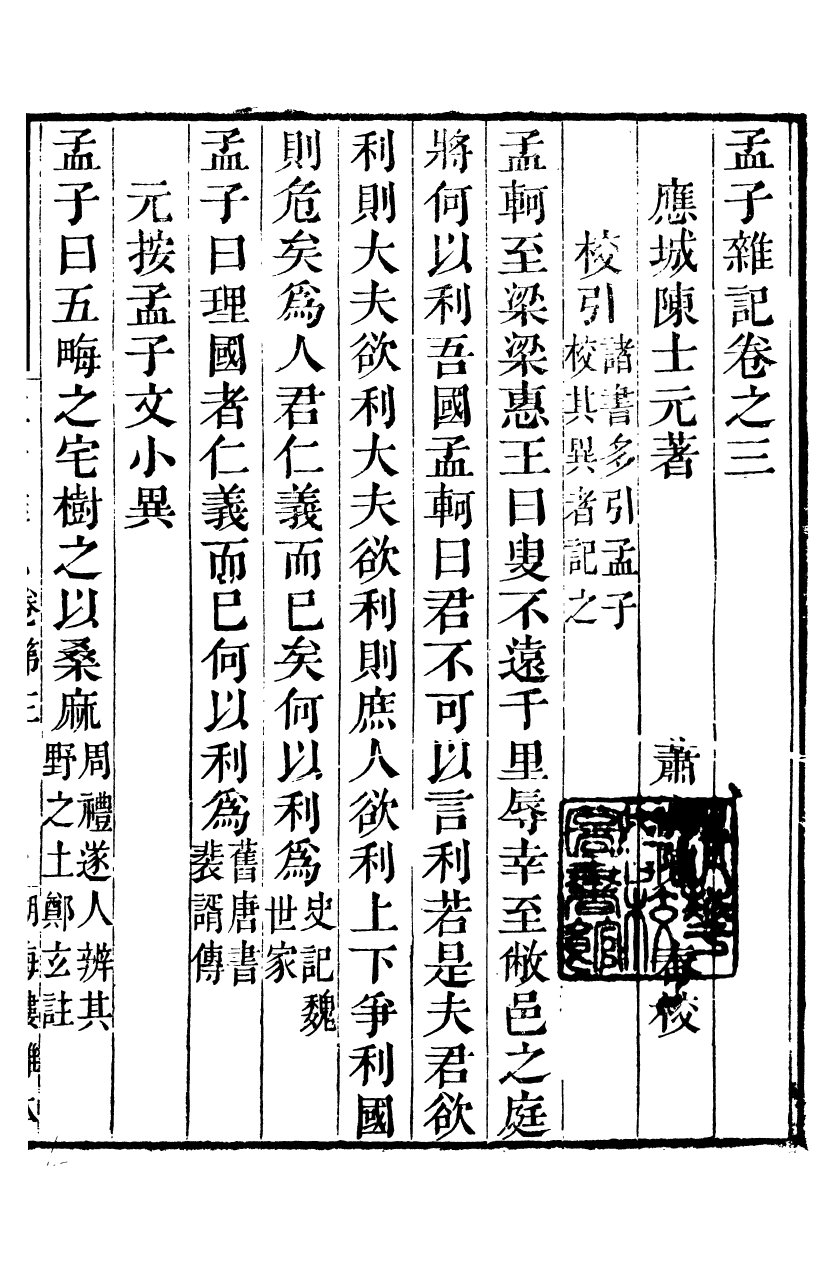 孟子雜記卷之三
應城陳士元著
蕭 校
校引諸書多引孟子校其異者記之
孟軻至梁梁惠王曰叟不遠千里辱幸至敝邑之庭
將何以利吾國孟軻曰君不可以言利若是夫君欲
利則大夫欲利大夫欲利則庶人欲利上下爭利國
則危矣爲人君仁義而已矣何以利爲史記魏世家
孟子曰理國者仁義而已何以利爲舊唐書裴諝傳
元按孟子文小異
孟子曰五畮之宅樹之以桑麻周禮遂人辨其野之土鄭玄註
卷第三
湖海樓雕本